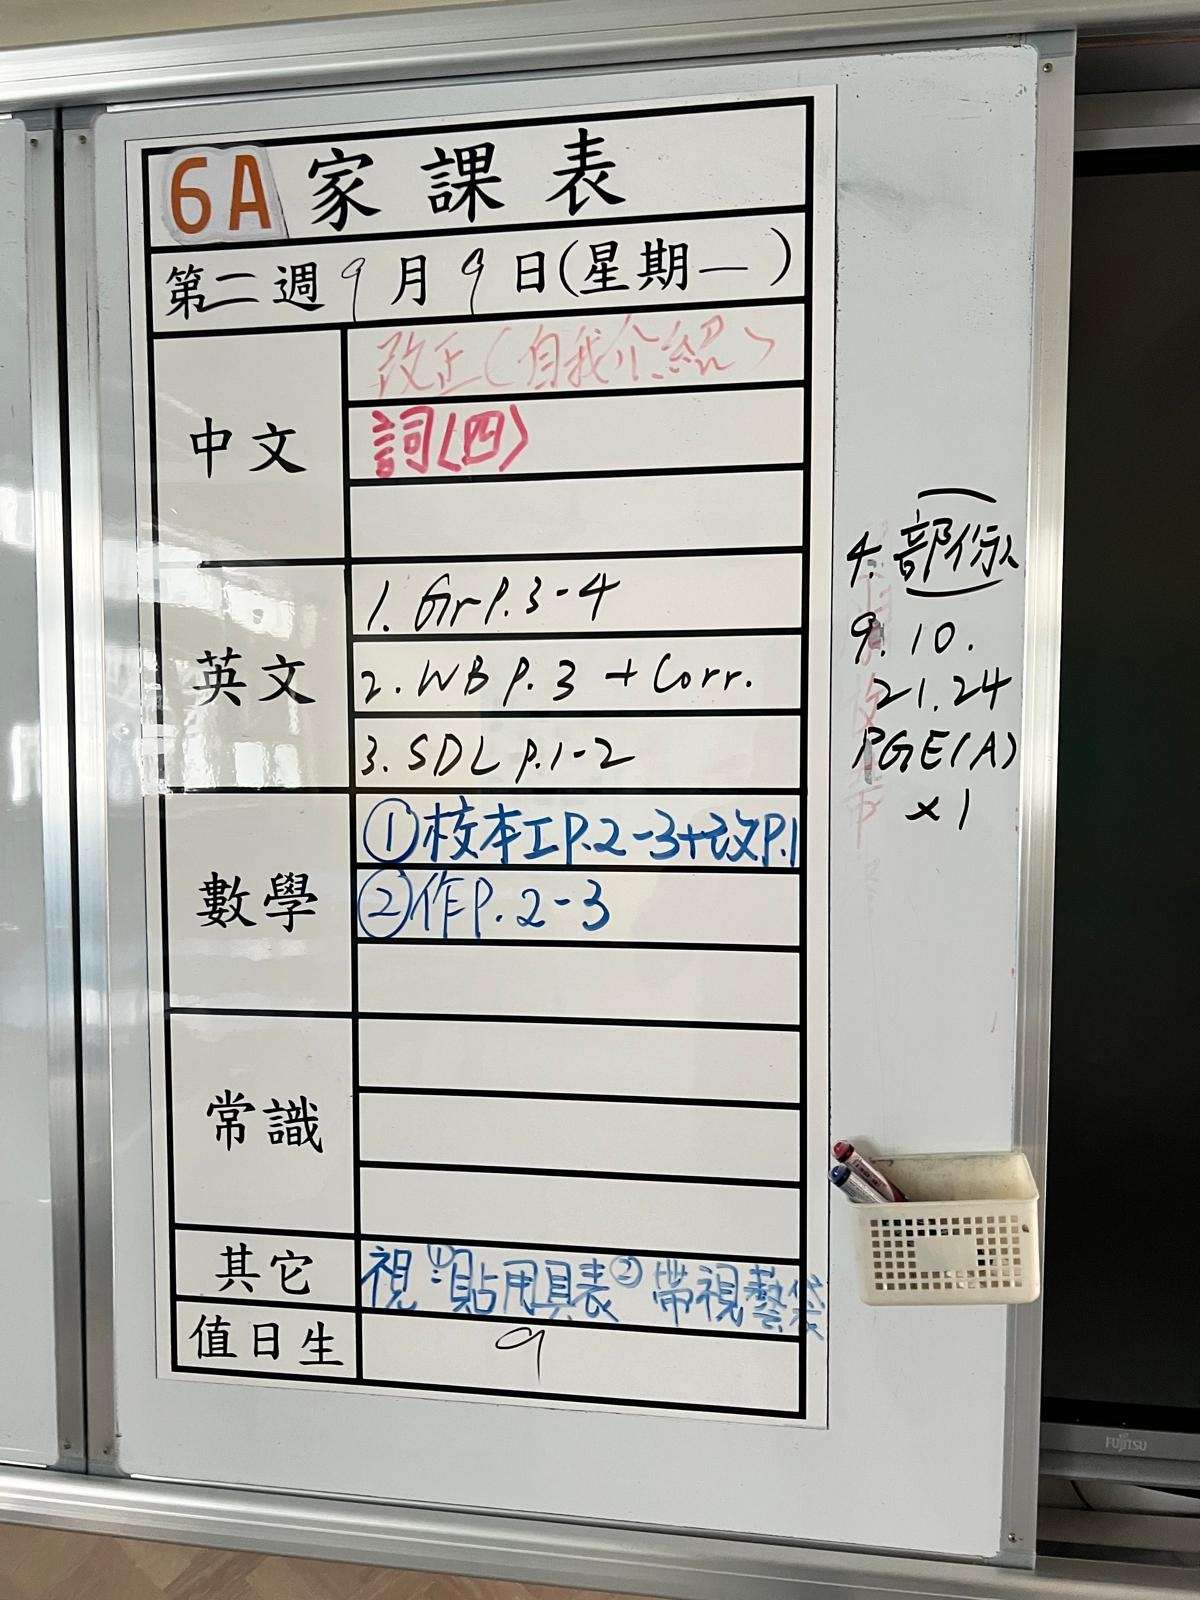 6A 家課表
第二週9月9日(星期一)
中文
改正(自我介紹)
詞(四)
英文
1. Gr P.3-4
2. WB P.3 + Corr.
3. SDL P.1-2
數學
①校本工P.2-3+改P.1
②作P.2-3
常識
其它
視:①貼用具表②帶視藝袋
值日生
9
4. 部份
9. 10.
21. 24
PGE(A)
x1
FUJITSU